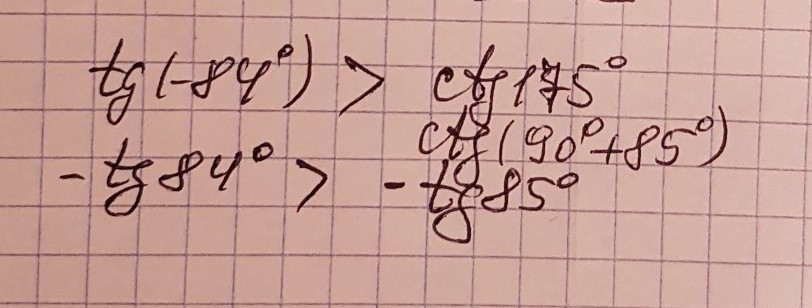 tg(-84°) > ctg175°
ctg(90°+85°)
-tg84° > -tg85°